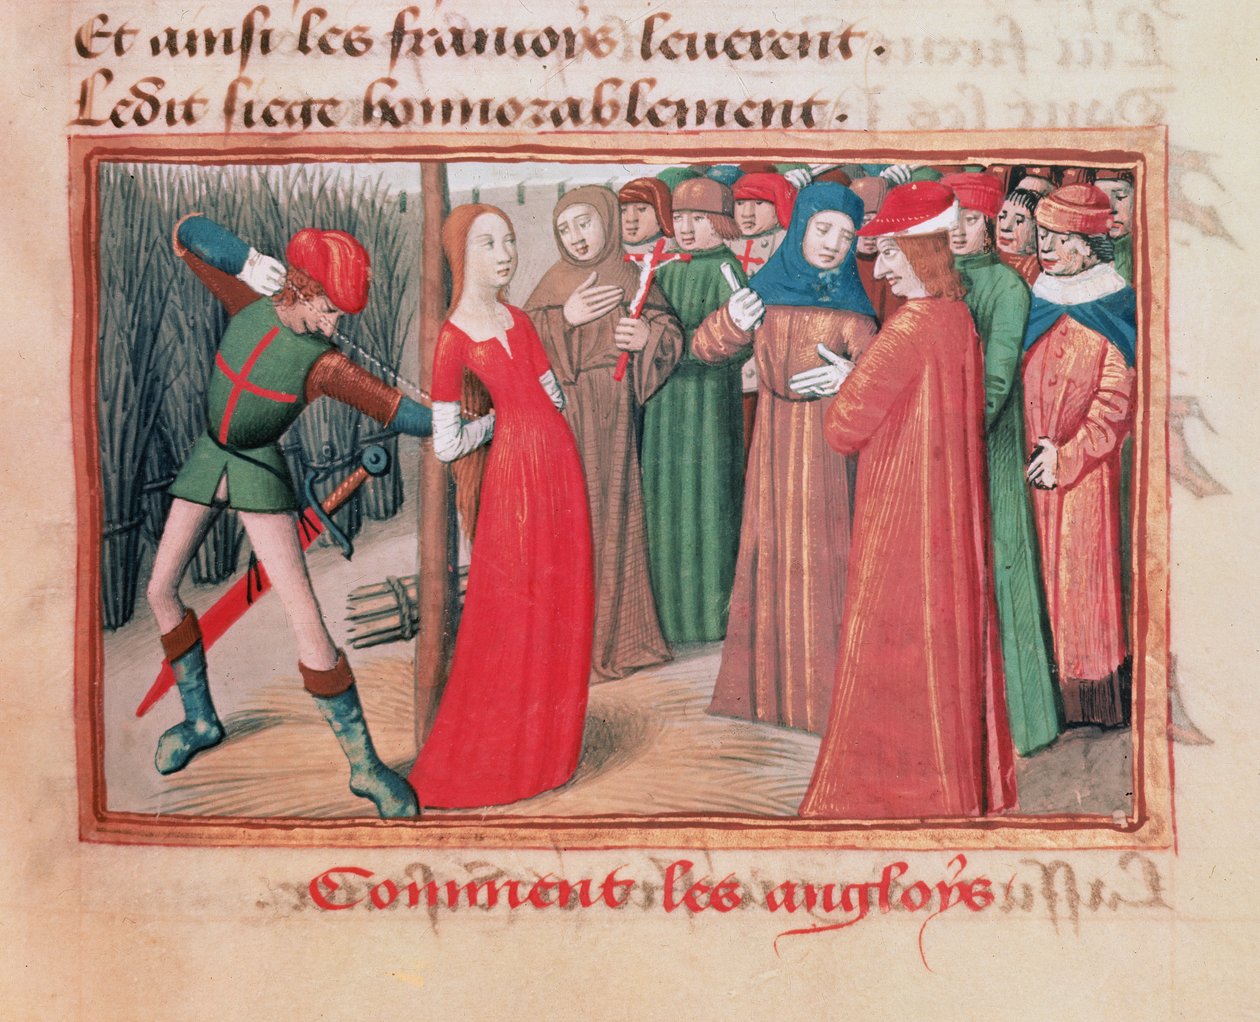 Et ainsi les francoys leuerent.
Ledit siege honnorablement.
Comment les angloys